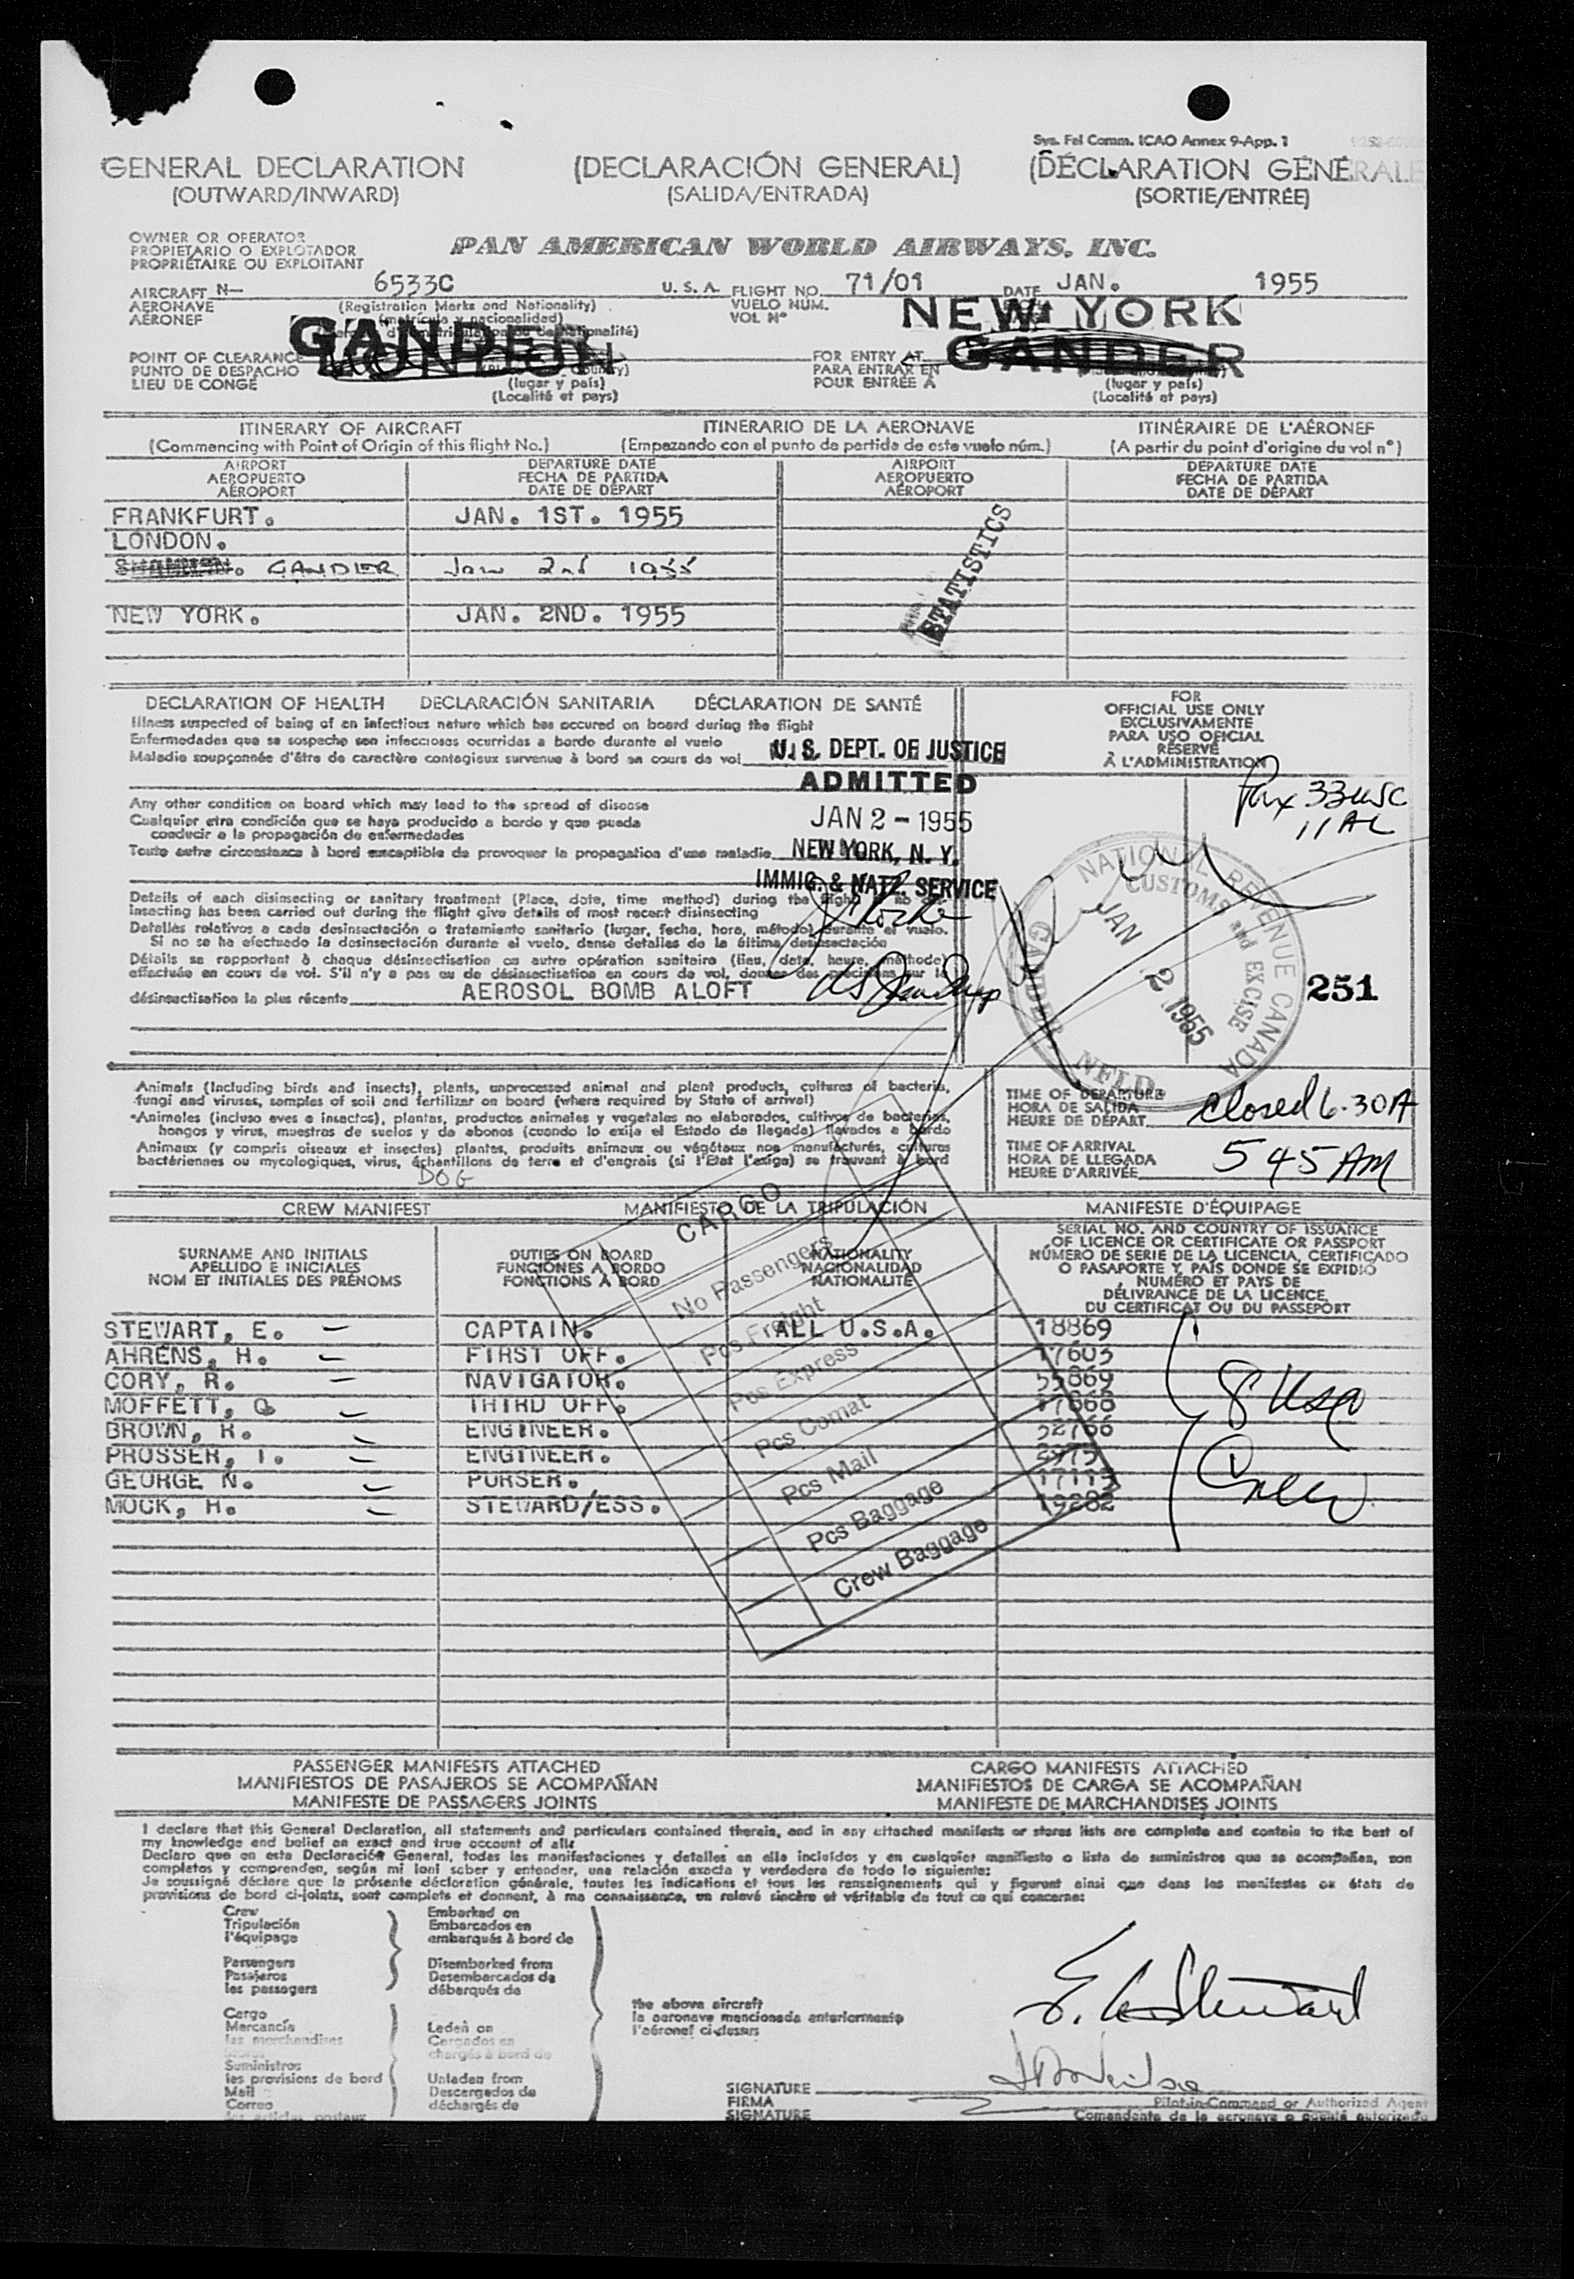 Sys. Fel Comm. ICAO Annex 9-App. 1
GENERAL DECLARATION (DECLARACIÓN GENERAL) (DÉCLARATION GÉNÉRALE
(OUTWARD/INWARD) (SALIDA/ENTRADA) (SORTIE/ENTRÉE)
OWNER OR OPERATOR
PROPIETARIO O EXPLOTADOR
PROPRIÉTAIRE OU EXPLOITANT
PAN AMERICAN WORLD AIRWAYS, INC.
AIRCRAFT N- 6533C U. S. A. FLIGHT NO. 71/01 DATE JAN. 1955
AERONAVE (Registration Marks and Nationality) VUELO NÚM.
AÉRONEF (matrícula y nacionalidad) VOL Nº
GANDER NEW YORK
POINT OF CLEARANCE LONDON FOR ENTRY AT GANDER
PUNTO DE DESPACHO PARA ENTRAR EN
LIEU DE CONGÉ (lugar y país) POUR ENTRÉE À (lugar y país)
(Localité et pays) (Localité et pays)
ITINERARY OF AIRCRAFT ITINERARIO DE LA AERONAVE ITINÉRAIRE DE L'AÉRONEF
(Commencing with Point of Origin of this flight No.) (Empezando con el punto de partida de este vuelo núm.) (A partir du point d'origine du vol nº)
AIRPORT DEPARTURE DATE AIRPORT DEPARTURE DATE
AEROPUERTO FECHA DE PARTIDA AEROPUERTO FECHA DE PARTIDA
AÉROPORT DATE DE DÉPART AÉROPORT DATE DE DÉPART
FRANKFURT. JAN. 1ST. 1955
LONDON.
SHANNON. GANDER Jan 2nd 1955
NEW YORK. JAN. 2ND. 1955
STATISTICS
DECLARATION OF HEALTH DECLARACIÓN SANITARIA DÉCLARATION DE SANTÉ
Illness suspected of being of an infectious nature which has occured on board during the flight
Enfermedades que se sospeche son infecciosas ocurridas a bordo durante el vuelo
Maladie soupçonnée d'être de caractère contagieux survenue à bord en cours de vol
U. S. DEPT. OF JUSTICE
ADMITTED
JAN 2 - 1955
NEW YORK, N. Y.
IMMIG. & NATZ. SERVICE
Any other condition on board which may lead to the spread of disease
Cualquier otra condición que se haya producido a bordo y que pueda
conducir a la propagación de enfermedades
Toute autre circonstance à bord susceptible de provoquer la propagation d'une maladie
Details of each disinsecting or sanitary treatment (Place, date, time method) during the flight
insecting has been carried out during the flight give details of most recent disinsecting
Detalles relativos a cada desinsectación o tratamiento sanitario (lugar, fecha, hora, método) durante el vuelo.
Si no se ha efectuado la desinsectación durante el vuelo, dense detalles de la última desinsectación
Détails se rapportant à chaque désinsectisation ou autre opération sanitaire (lieu, date, heure, méthode)
effectuée en cours de vol. S'il n'y a pas eu de désinsectisation en cours de vol, donner des précisions sur la
désinsectisation la plus récente AEROSOL BOMB ALOFT
FOR
OFFICIAL USE ONLY
EXCLUSIVAMENTE
PARA USO OFICIAL
RÉSERVÉ
À L'ADMINISTRATION
Pax 33 USC
11 AL
NATIONAL REVENUE CANADA
CUSTOMS and EXCISE
JAN 2 1955
GANDER NFLD.
251
Animals (Including birds and insects), plants, unprocessed animal and plant products, cultures of bacteria,
fungi and viruses, samples of soil and fertilizer on board (where required by State of arrival)
Animales (incluso aves e insectos), plantas, productos animales y vegetales no elaborados, cultivos de bacterias,
hongos y virus, muestras de suelos y de abonos (cuando lo exija el Estado de llegada) llevados a bordo
Animaux (y compris oiseaux et insectes) plantes, produits animaux ou végétaux non manufacturés, cultures
bactériennes ou mycologiques, virus, échantillons de terre et d'engrais (si l'État l'exige) se trouvant à bord
DOG
TIME OF DEPARTURE
HORA DE SALIDA
HEURE DE DÉPART closed 6.30A
TIME OF ARRIVAL
HORA DE LLEGADA
HEURE D'ARRIVÉE 5 45 AM
CREW MANIFEST MANIFIESTO DE LA TRIPULACIÓN MANIFESTE D'ÉQUIPAGE
SURNAME AND INITIALS
APELLIDO E INICIALES
NOM ET INITIALES DES PRÉNOMS
DUTIES ON BOARD
FUNCIONES A BORDO
FONCTIONS À BORD
NATIONALITY
NACIONALIDAD
NATIONALITÉ
SERIAL NO. AND COUNTRY OF ISSUANCE
OF LICENCE OR CERTIFICATE OR PASSPORT
NÚMERO DE SERIE DE LA LICENCIA, CERTIFICADO
O PASAPORTE Y PAÍS DONDE SE EXPIDIÓ
NUMÉRO ET PAYS DE
DÉLIVRANCE DE LA LICENCE,
DU CERTIFICAT OU DU PASSEPORT
STEWART, E. – CAPTAIN. ALL U.S.A. 18869
AHRENS, H. – FIRST OFF. 17603
CORY, R. – NAVIGATOR. 55869
MOFFETT, – THIRD OFF. 17866
BROWN, R. – ENGINEER. 52766
PROSSER, I. – ENGINEER. 2975
GEORGE N. – PURSER. 17115
MOCK, H. – STEWARD/ESS. 19282
8 USA
Crew
CARGO
No Passengers
Pcs Freight
Pcs Express
Pcs Comat
Pcs Mail
Pcs Baggage
Crew Baggage
PASSENGER MANIFESTS ATTACHED CARGO MANIFESTS ATTACHED
MANIFIESTOS DE PASAJEROS SE ACOMPAÑAN MANIFIESTOS DE CARGA SE ACOMPAÑAN
MANIFESTE DE PASSAGERS JOINTS MANIFESTE DE MARCHANDISES JOINTS
I declare that this General Declaration, all statements and particulars contained therein, and in any attached manifests or stores lists are complete and contain to the best of
my knowledge and belief an exact and true account of all:
Declaro que en esta Declaración General, todas las manifestaciones y detalles en ella incluídos y en cualquier manifiesto o lista de suministros que se acompañan, son
completos y comprenden, según mi leal saber y entender, una relación exacta y verdadera de todo lo siguiente:
Je soussigné déclare que la présente déclaration générale, toutes les indications et tous les renseignements qui y figurent ainsi que dans les manifestes ou états de
provisions de bord ci-joints, sont complets et donnent, à ma connaissance, un relevé sincère et véritable de tout ce qui concerne:
Crew
Tripulación
l'équipage
Passengers
Pasajeros
les passagers
Cargo
Mercancía
les marchandises
Suministros
les provisions de bord
Mail
Correo
les articles postaux
Embarked on
Embarcados en
embarqués à bord de
Disembarked from
Desembarcados de
débarqués de
Laden on
Cargados en
chargés à bord de
Unladen from
Descargados de
déchargés de
the above aircraft
la aeronave mencionada anteriormente
l'aéronef ci-dessus
E. Stewart
SIGNATURE
FIRMA Pilot-in-Command or Authorized Agent
SIGNATURE Comandante de la aeronave o agente autorizado